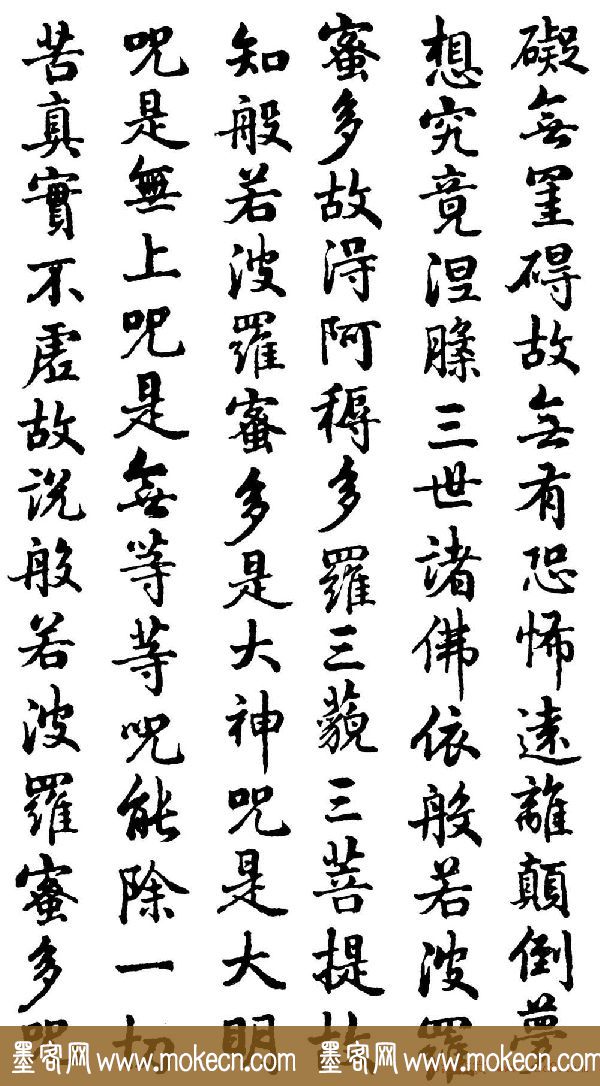 礙無罣碍故無有恐怖遠離顛倒夢
想究竟涅槃三世諸佛依般若波羅
蜜多故得阿耨多羅三藐三菩提故
知般若波羅蜜多是大神咒是大明
咒是無上咒是無等等咒能除一切
苦真實不虛故説般若波羅蜜多咒
墨客网 www.mokecn.com 墨客网 www.mokecn.com